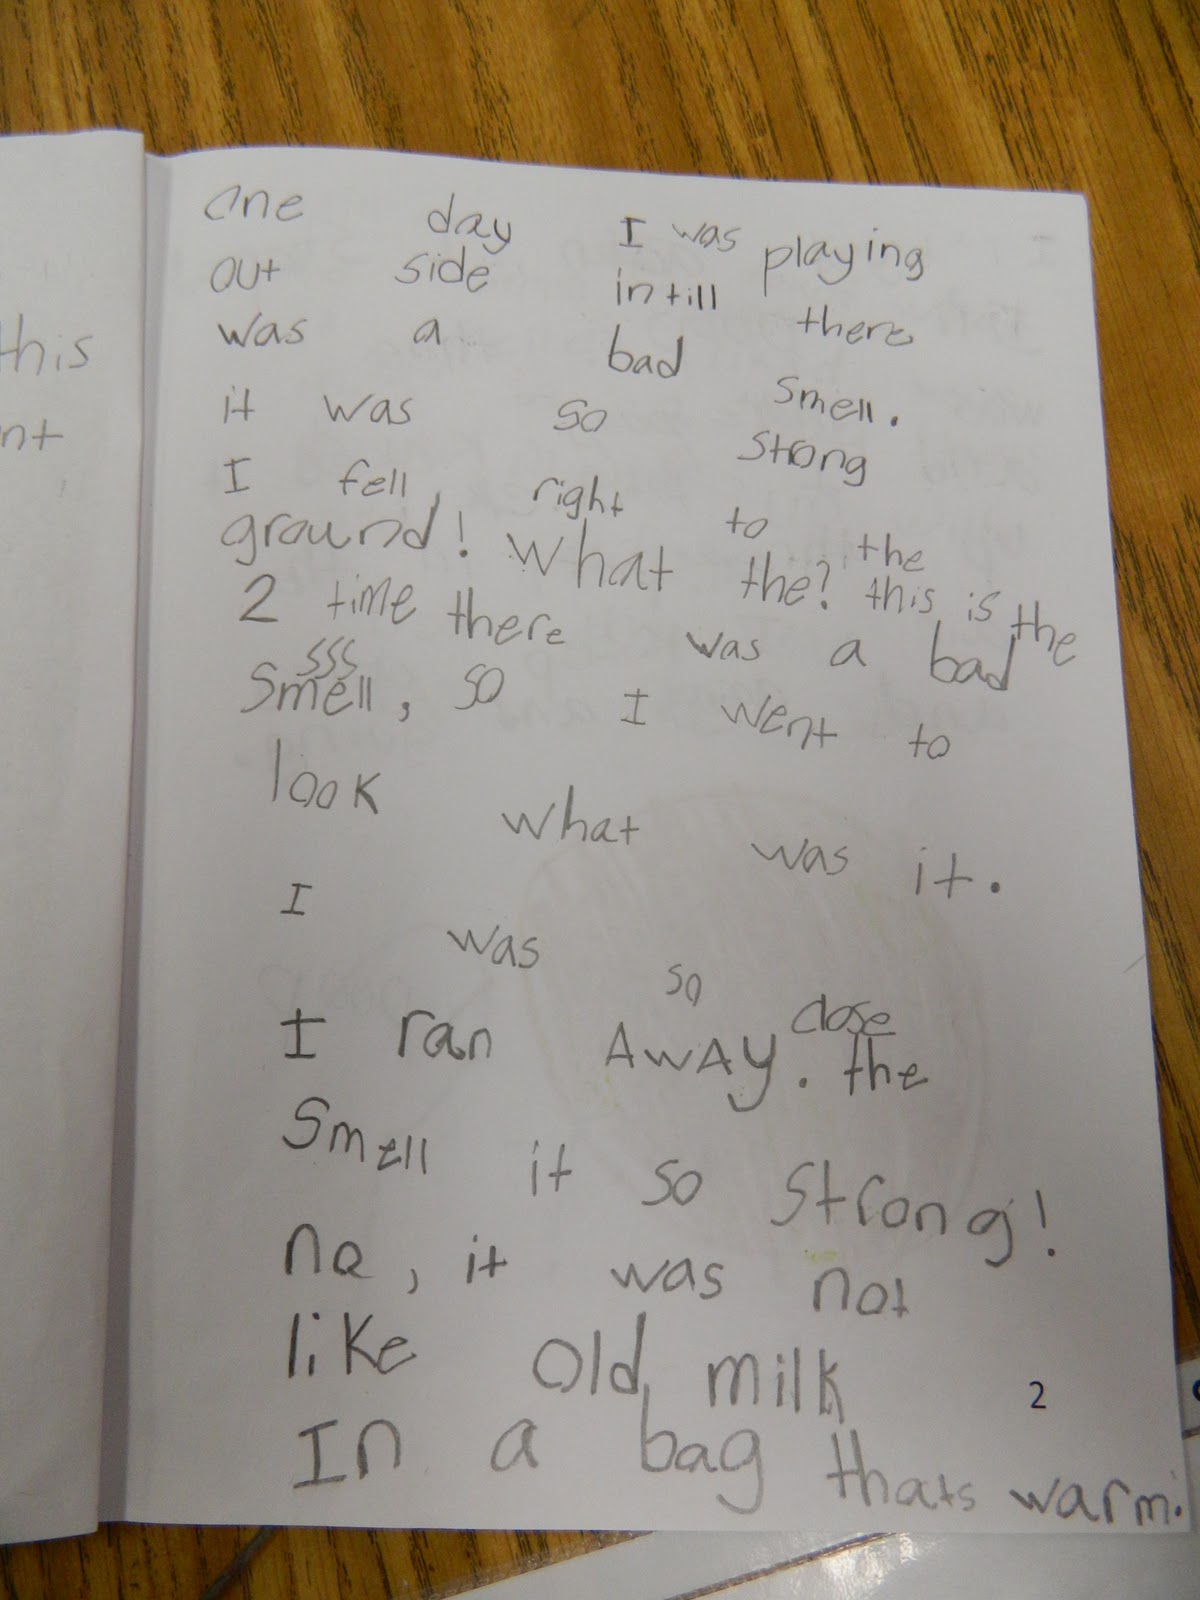 this
nt
one day I was playing
out side intill there
was a bad smell.
it was so strong
I fell right to the
ground! What the? this is the
2 time there was a bad
smell, so I went to
look what was it.
I was so close
I ran AwAy. the
smell it so strong!
no, it was not
like old milk
In a bag thats warm.
2